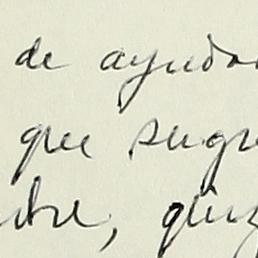 de ayudar
que sugre
tre, quiz